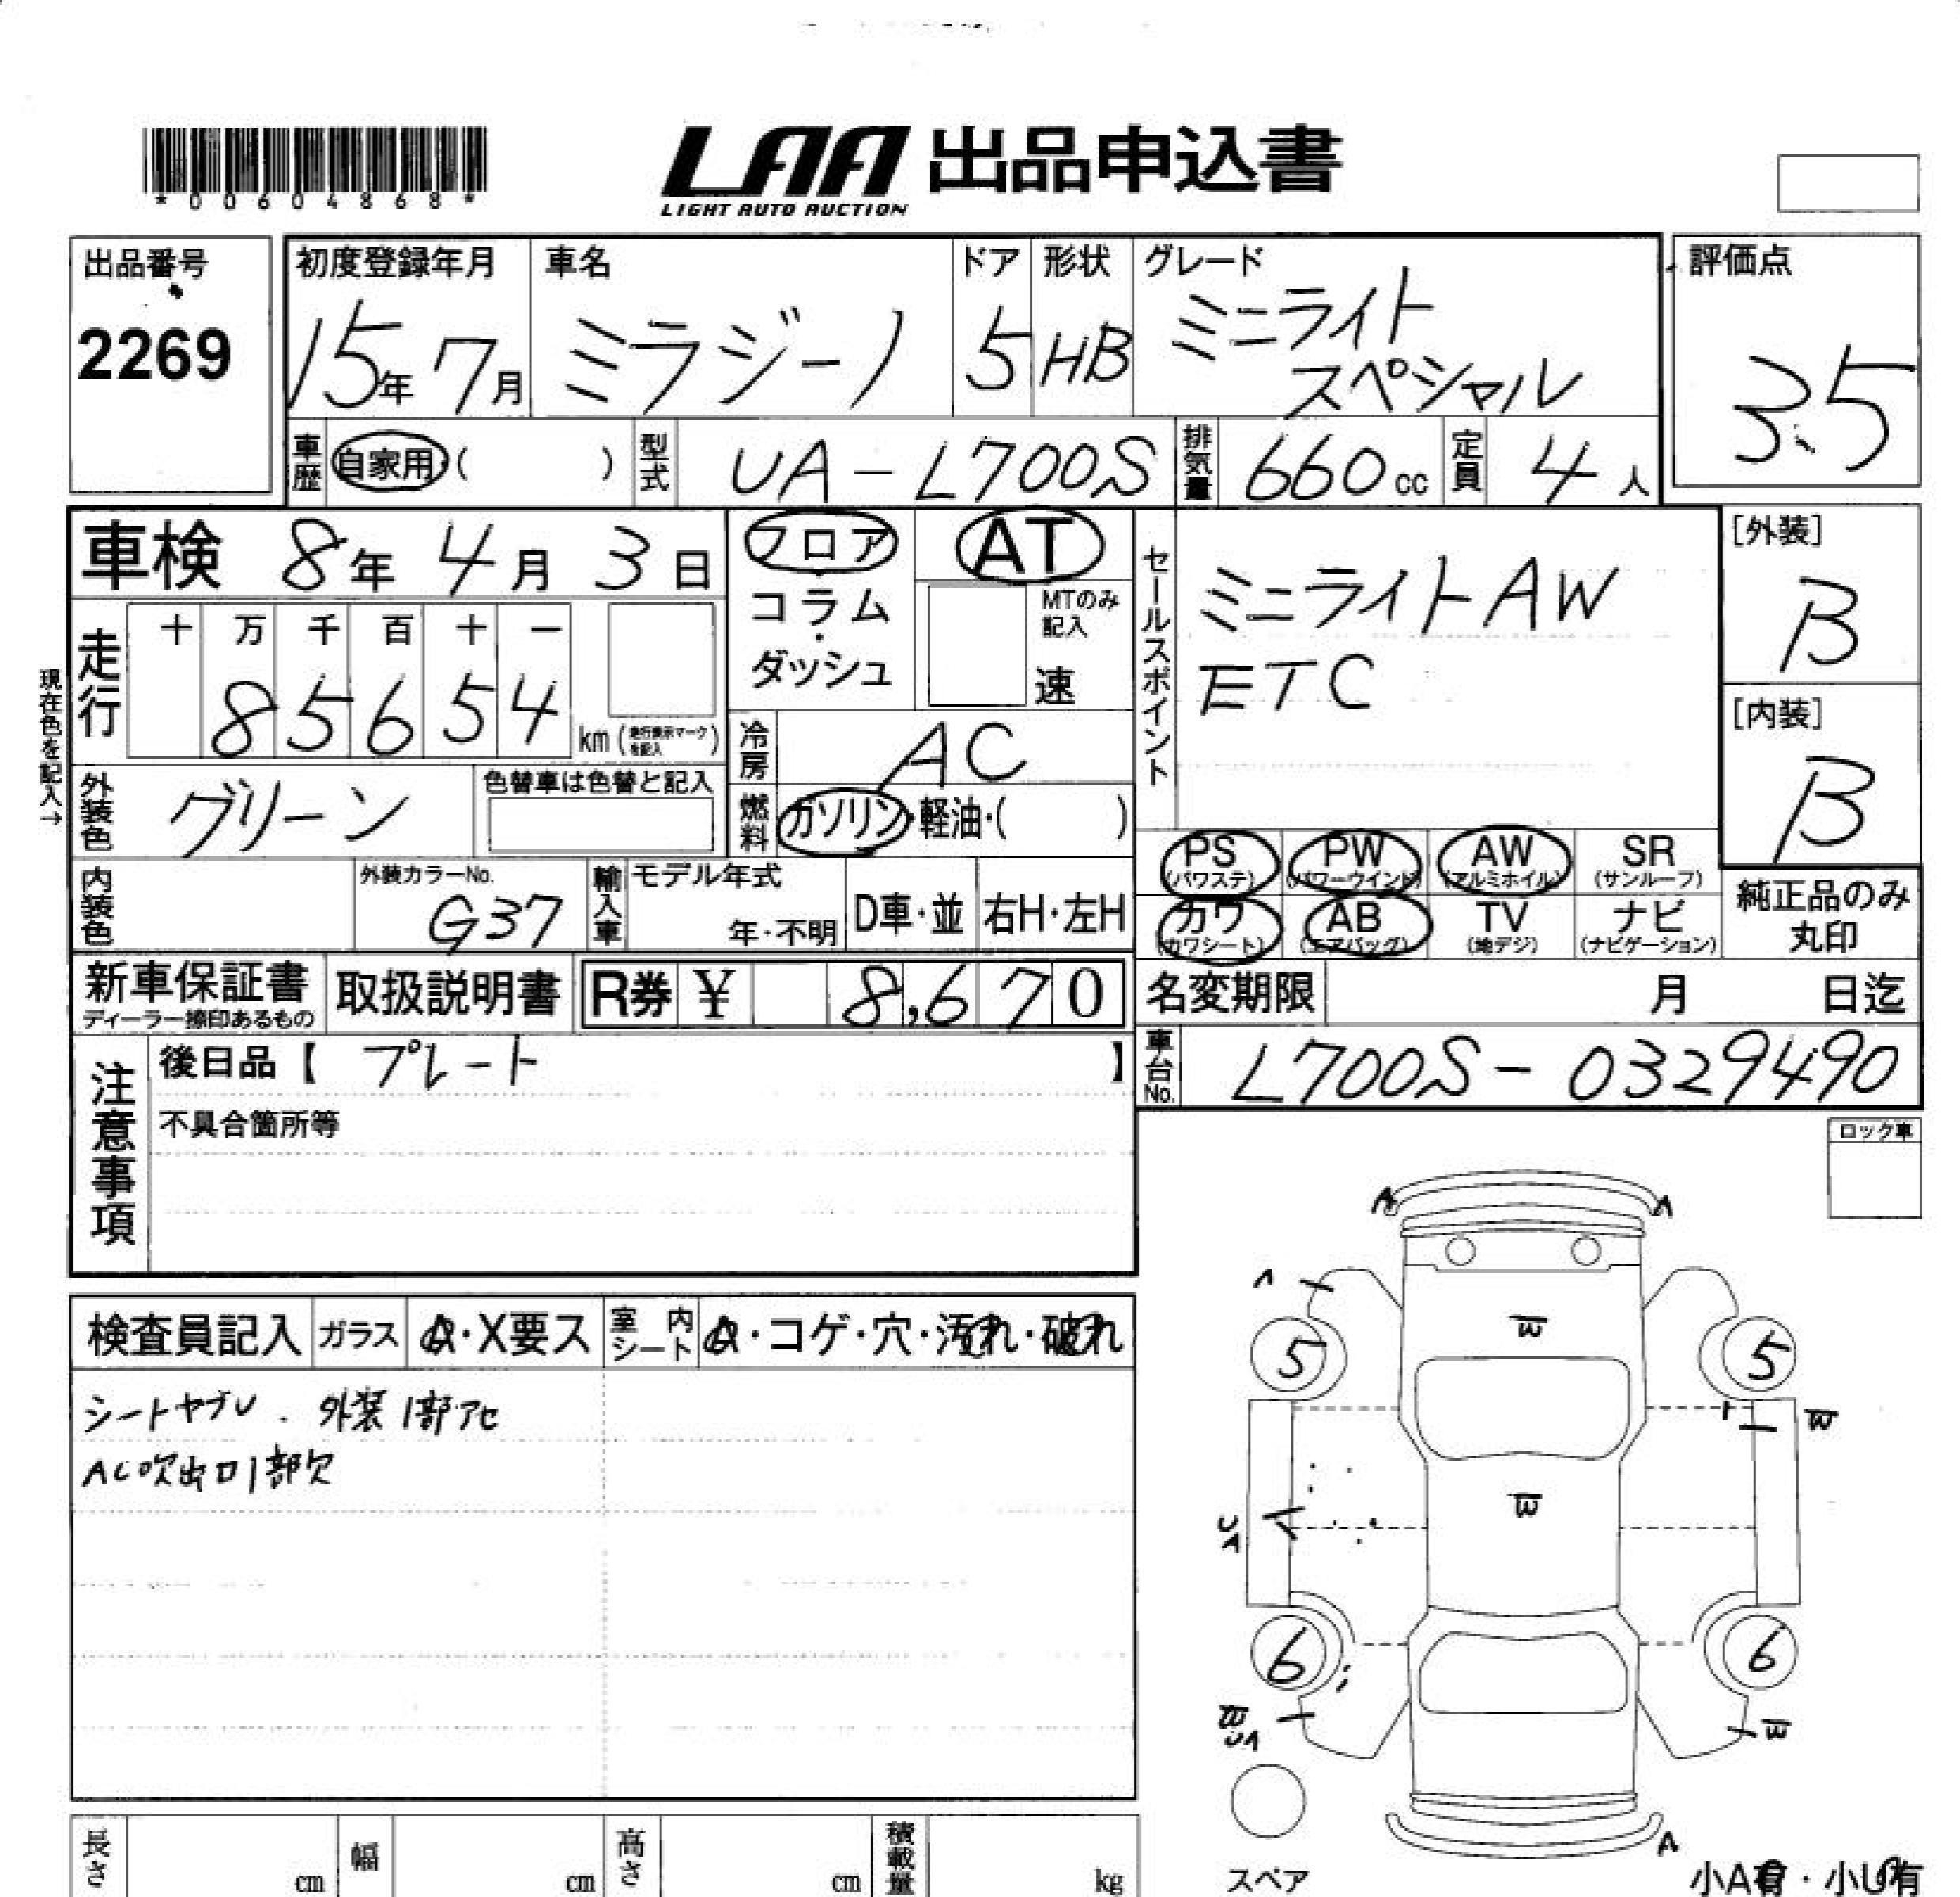 *00604868*
LAA 出品申込書
LIGHT AUTO AUCTION
出品番号
2269
初度登録年月
15年 7月
車名
ミラジーノ
ドア
5
形状
HB
グレード
ミニライト
スペシャル
評価点
3.5
車歴
自家用・( )
型式
UA-L700S
排気量
660cc
定員
4人
車検 8年 4月 3日
現在色を記入→
走行
十 万 千 百 十 一
8 5 6 5 4
km
外装色
グリーン
色替車は色替と記入
内装色
外装カラーNo.
G37
フロア
・
コラム
・
ダッシュ
AT
MTのみ
記入
速
冷房
AC
燃料
ガソリン・軽油・( )
輸入車
モデル年式
年・不明
D車・並
右H・左H
セールスポイント
ミニライトAW
ETC
[外装]
B
[内装]
B
PS
(パワステ)
PW
(パワーウインド)
AW
(アルミホイル)
SR
(サンルーフ)
カワ
(カワシート)
AB
(エアバッグ)
TV
(地デジ)
ナビ
(ナビゲーション)
純正品のみ
丸印
新車保証書
ディーラー捺印あるもの
取扱説明書
R券 ¥ 8,670
名変期限 月 日迄
車台No.
L700S-0329490
注意事項
後日品【 プレート 】
不具合箇所等
ロック車
検査員記入
ガラス
A・X要ス
室内シート
A・コゲ・穴・汚れ・破れ
シートヤブレ . 外装1部アセ
AC吹出口1部欠
A A
A
5 5
W
W
W
6 6
W
A
スペア
小A有・小U有
長さ cm
幅 cm
高さ cm
積載量 kg